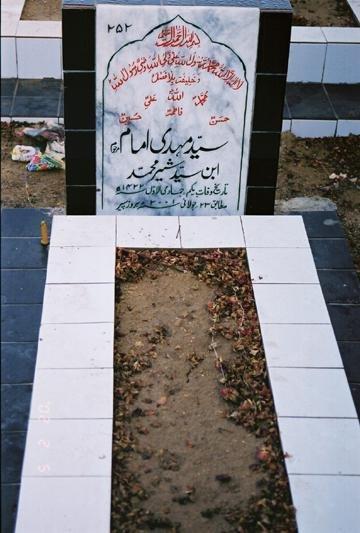 ۲۵۲
بسم اللہ الرحمن الرحیم
لا الہ الا اللہ محمد رسول اللہ علی ولی اللہ وصی رسول اللہ
و خلیفتہ بلا فصل
محمدؐ اللہ علیؑ
فاطمہؑ
حسنؑ حسینؑ
سید مہدی امام مرحوم
ابن سید شبیر محمد
تاریخ وفات یکم جمادی الاول ۱۴۲۲ھ
مطابق ۲۳ جولائی ۲۰۰۱ء بروز پیر